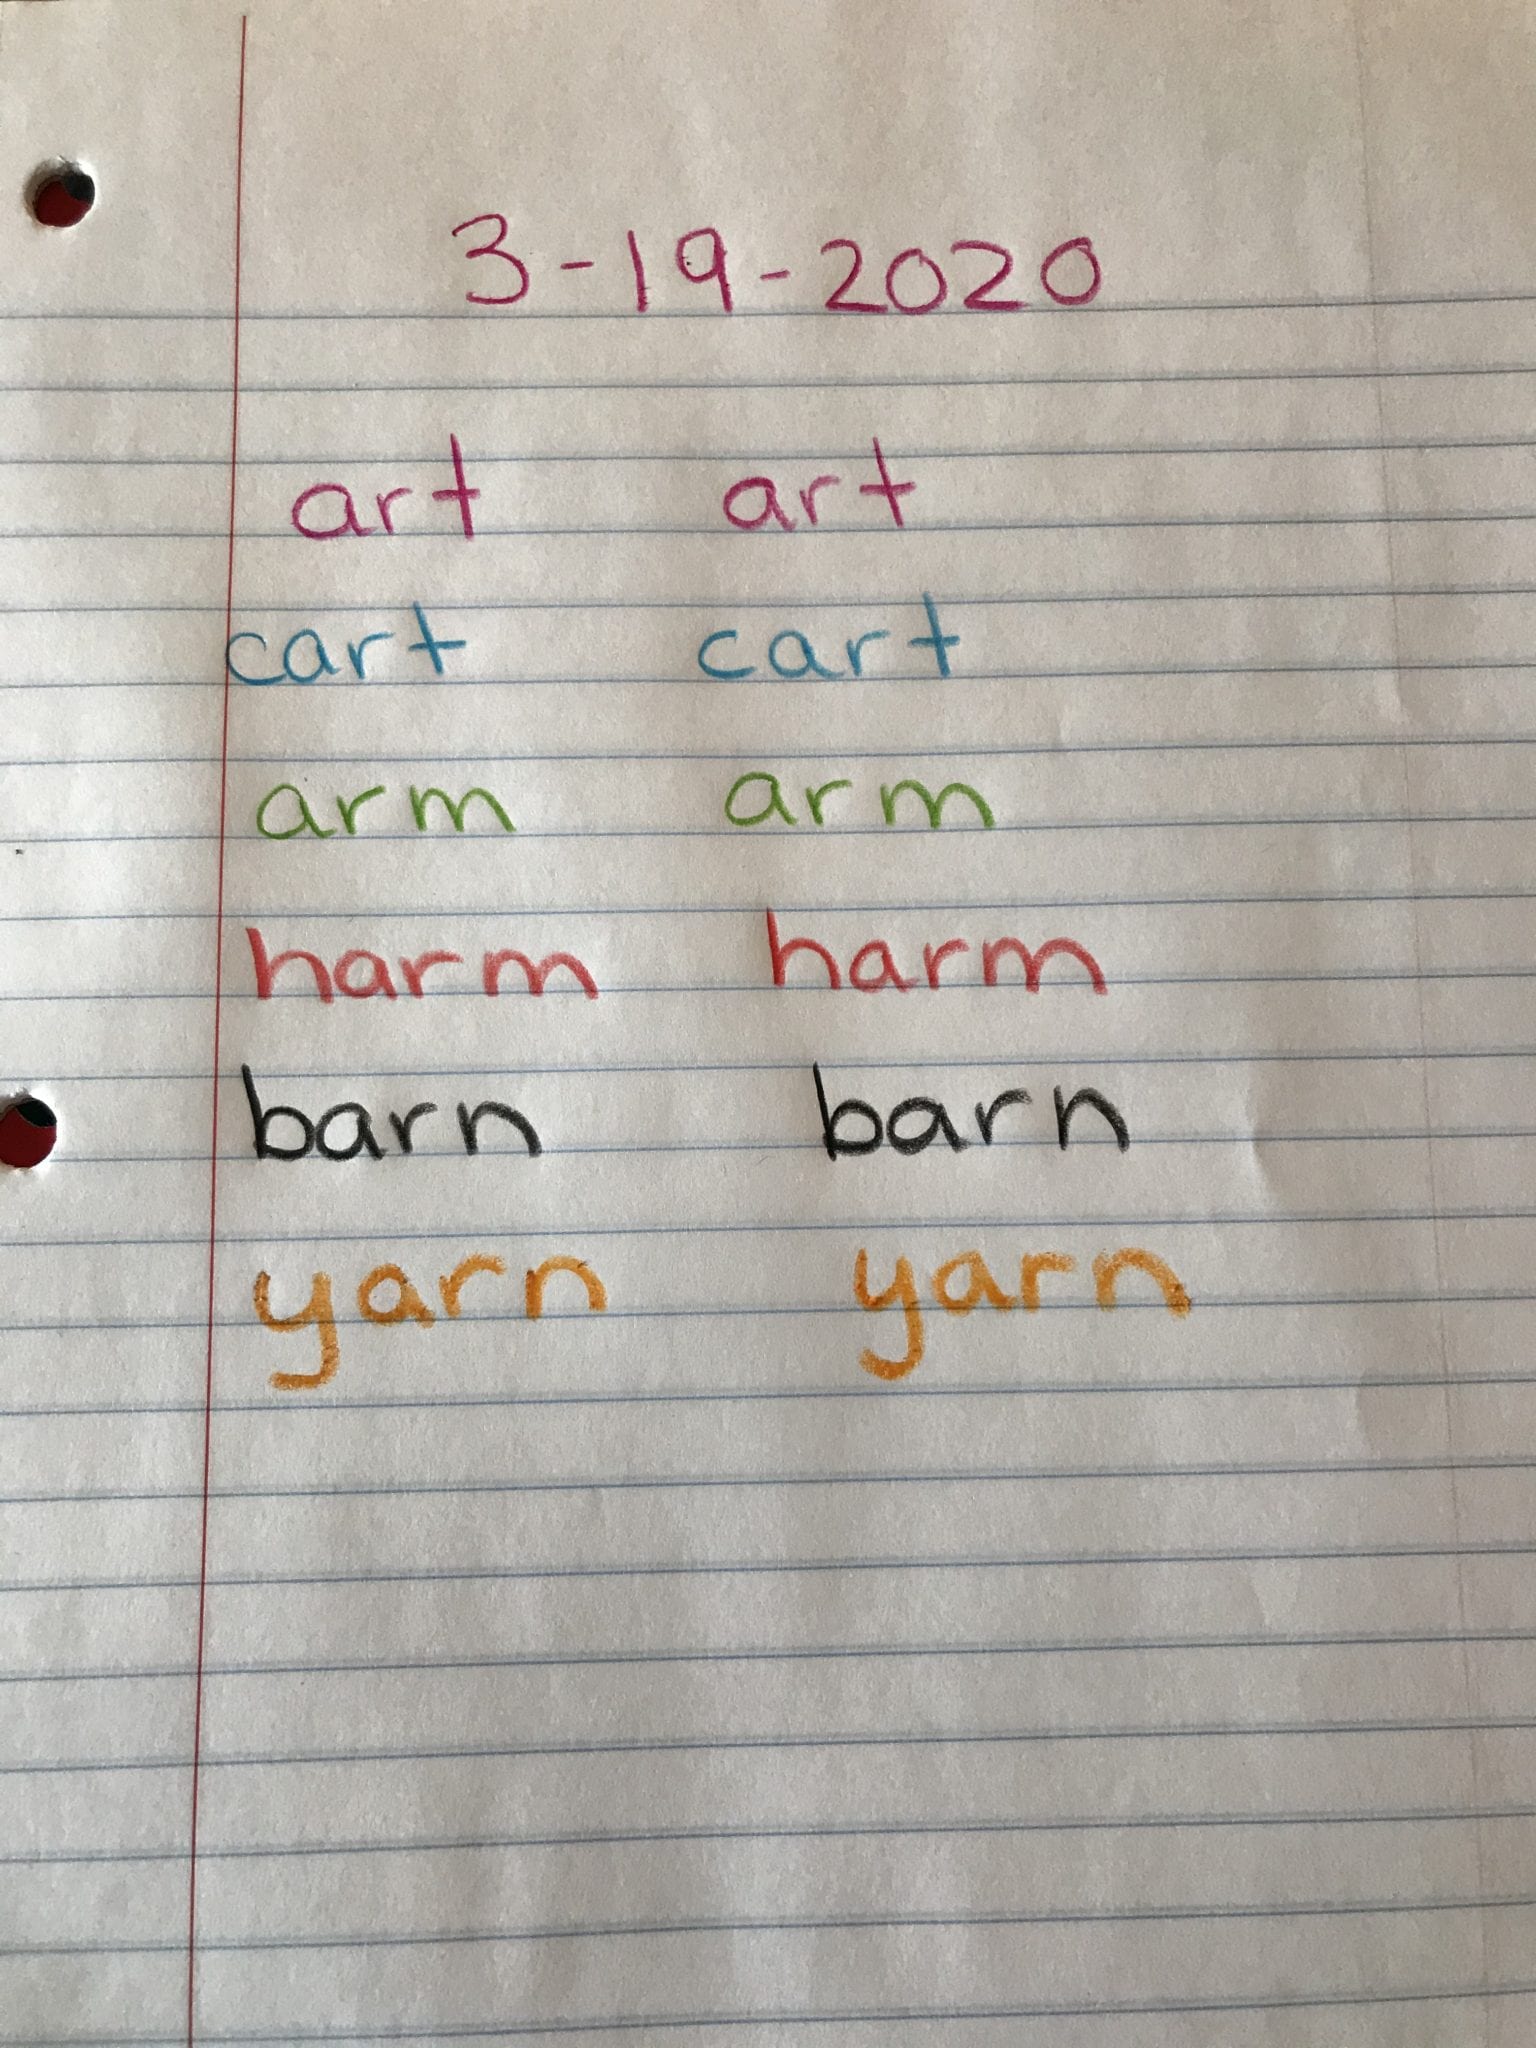 3-19-2020
art art
cart cart
arm arm
harm harm
barn barn
yarn yarn